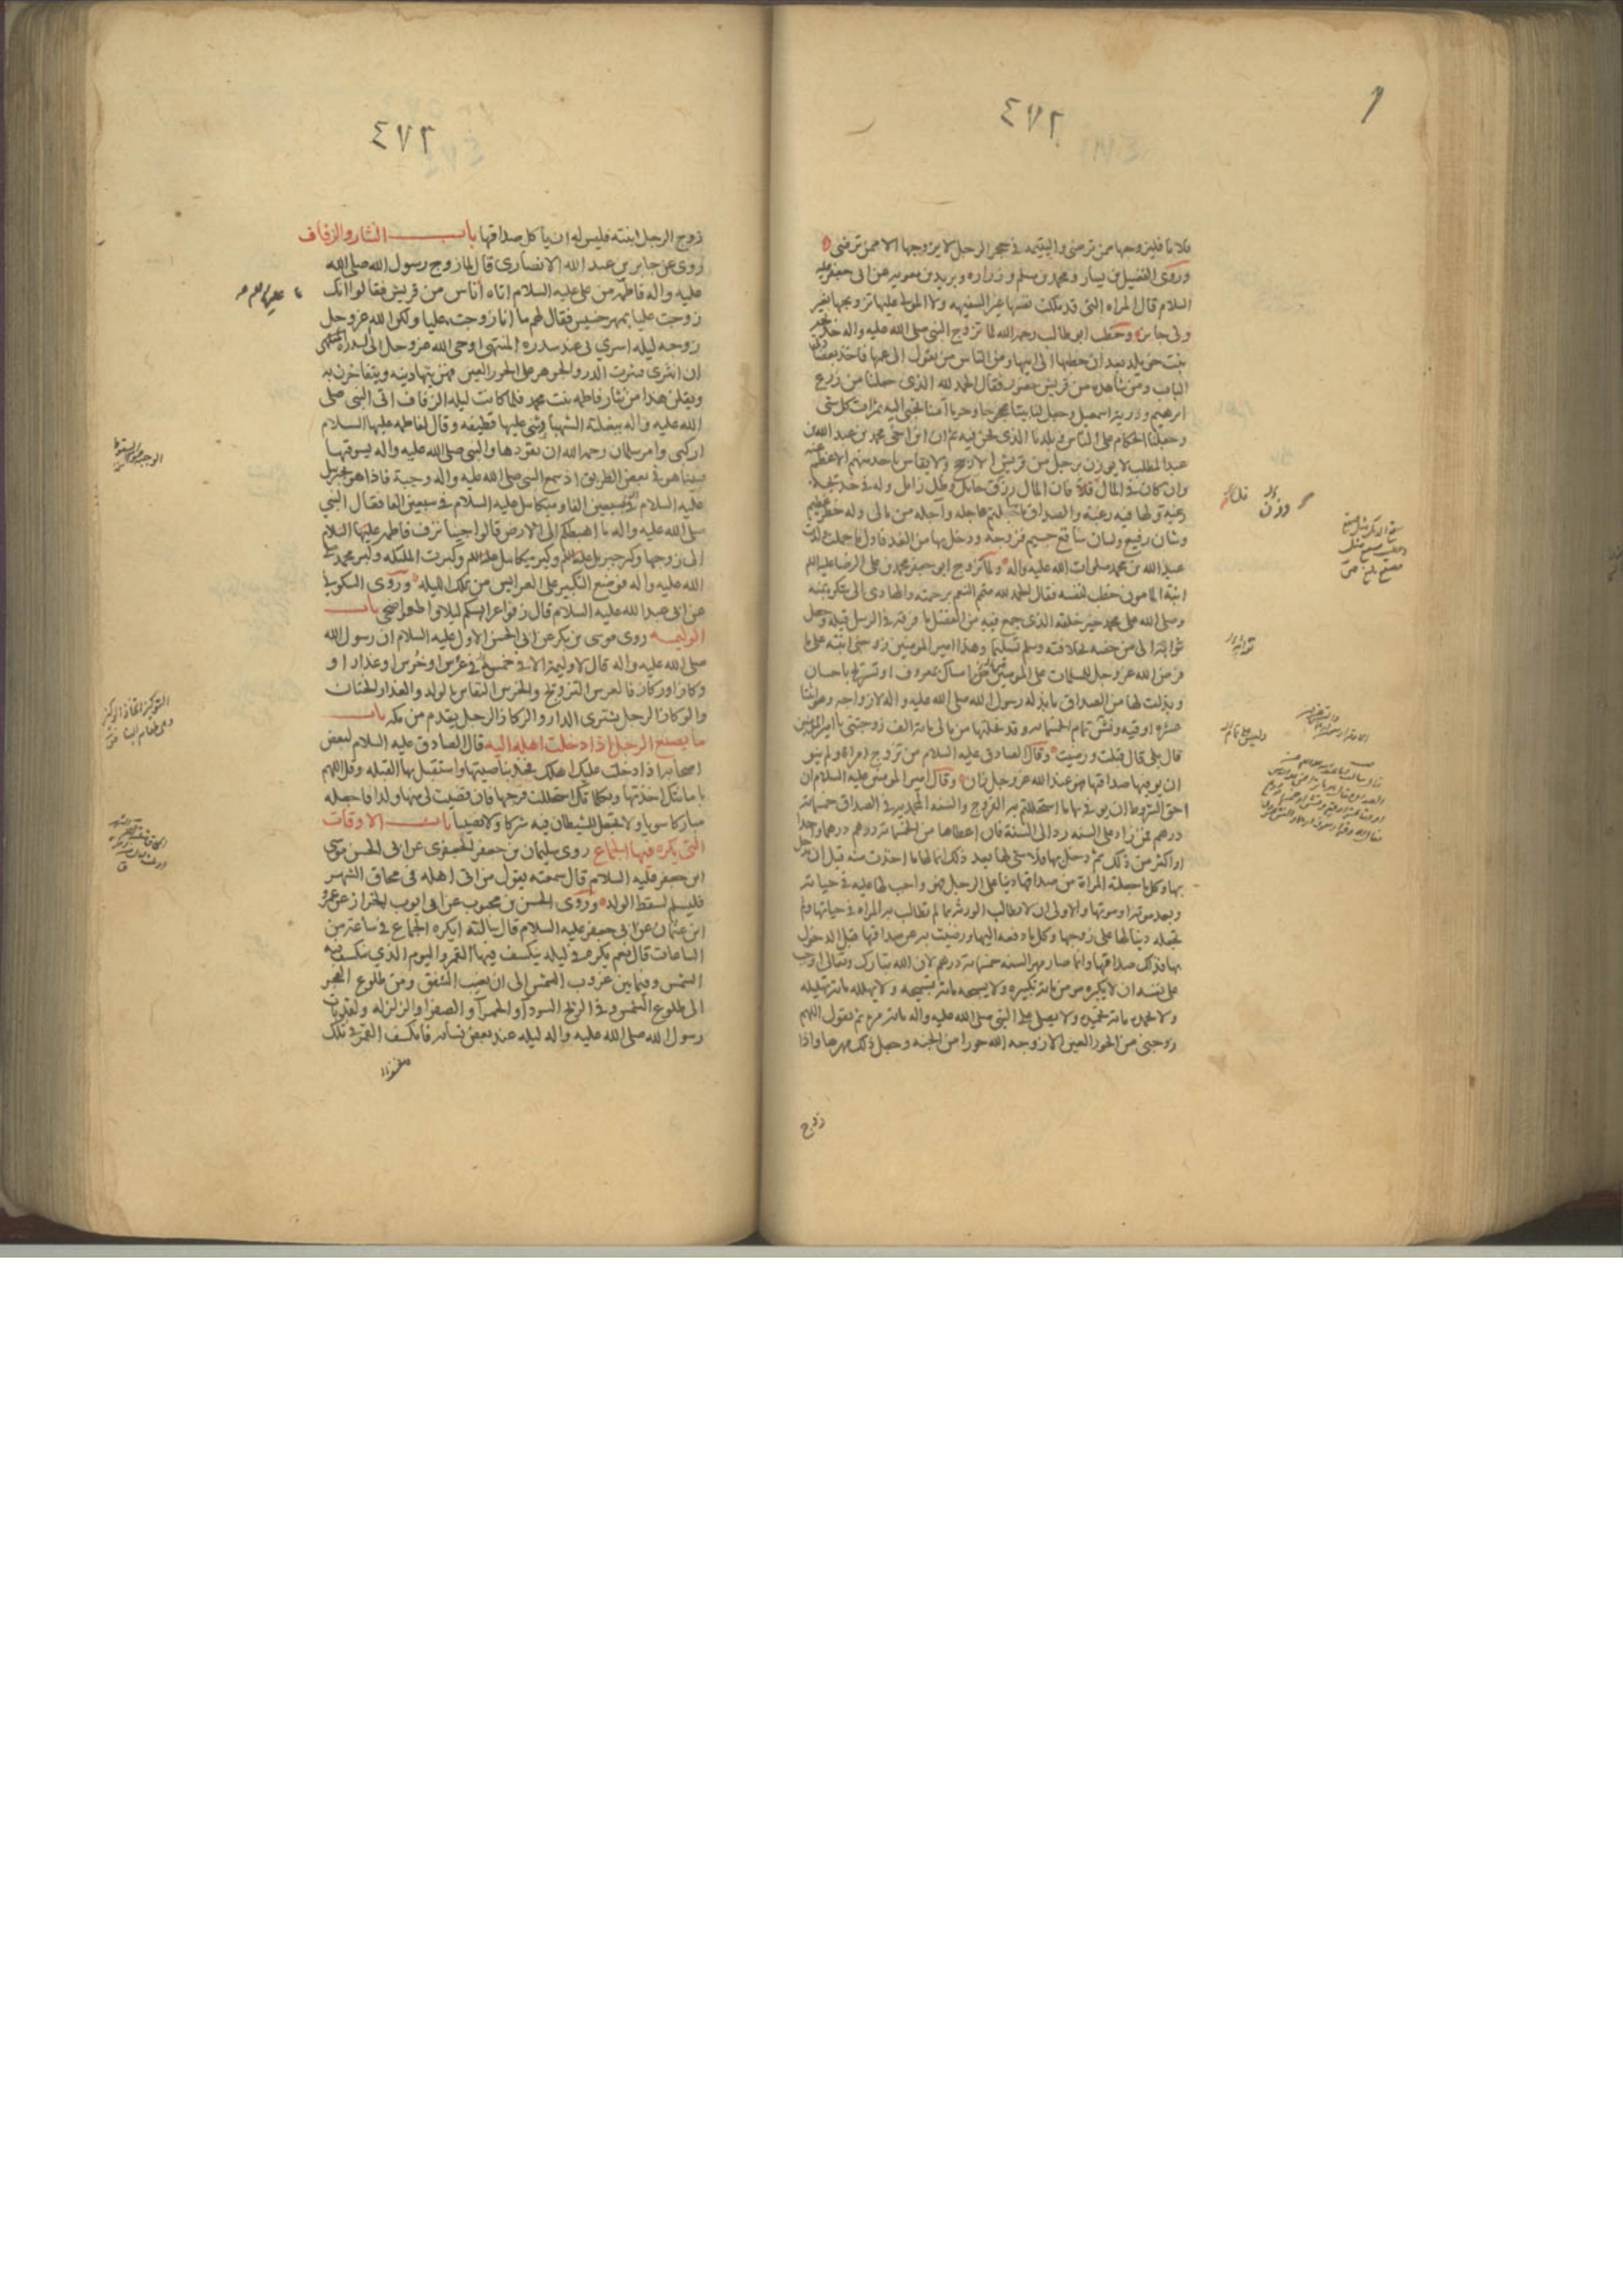 ٤٧٢
فلانا فليزوجها ممن ترضى واليتيمه في حجر الرجل لا يزوجها الا ممن ترضى
وروى الفضيل بن يسار ومحمد بن مسلم وزراره وبريد بن معويه عن ابى جعفر عليه
السلام قال المراه التى قد ملكت نفسها غير السفيهه ولا المولى عليها تزويجها بغير
ولى جايز وخطب ابى طالب رحمه الله لما تزوج النبى صلى الله عليه واله خديجه
بنت خويلد بعد ان خطبها الى ابيها ومن الناس من يقول الى عمها فاخذ بعضادتى
الباب ومن شاهده من قريش حضور فقال الحمد لله الذى جعلنا من زرع
ابرهيم وذرية اسمعيل وجعل لنا بيتا محجوجا وحرما آمنا يجبى اليه ثمرات كل شى
وجعلنا الحكام على الناس فى بلدنا الذى نحن فيه ثم ان ابن اخى محمد بن عبد الله بن
عبد المطلب لا يوزن برجل من قريش الا رجح ولا يقاس باحد منهم الا عظم عنه
وان كان فى المال قل فان المال رزق حايل وظل زايل وله فى خديجه
رغبة ولها فيه رغبة والصداق ما سالتم عاجله وآجله من مالى وله خطر عظيم
وشان رفيع ولسان شافع جسيم فزوجه ودخل بها من الغد فاول ما حملت ولدت
عبد الله بن محمد صلوات الله عليه واله ولما تزوج ابى جعفر محمد بن على الرضا عليه السلام
ابنة المامون خطب لنفسه فقال الحمد لله متمم النعم برحمته والهادى الى شكره بمنه
وصلى الله على محمد خير خلقه الذى جمع فيه من الفضل ما فرقه فى الرسل قبله وجعل
تراثه الى من خصه بخلافته وسلم تسليما وهذا امير المومنين زوجنى ابنته على ما
فرض الله عز وجل للمسلمات على المومنين من امساك بمعروف او تسريح باحسان
وبذلت لها من الصداق ما بذله رسول الله صلى الله عليه واله لازواجه وهو اثنتا
عشره اوقيه ونش تمام الخمسمائه وقد نحلتها من مالى مائة الف زوجتنى يا امير المومنين
قال بلى قال قبلت ورضيت وقال الصادق عليه السلام من تزوج امراة ولم ينو
ان يوفيها صداقها فهو عند الله عز وجل زان وقال امير المومنين عليه السلام ان
احق الشروط ان يوفى بها ما استحللتم به الفروج والسنه المحمديه فى الصداق خمسمائه
درهم فمن زاد على السنه رد الى السنة فان اعطاها من الخمسمائه درهم درهما واحدا
او اكثر من ذلك ثم دخل بها فلا شى لها بعد ذلك انما لها ما اخذت منه قبل ان يدخل
بها وكل ما جعلته المراة من صداقها دينا على الرجل فهو واجب لها عليه فى حياته
وبعد موته او موتها والاولى ان لا يطالب الورثه بما لم تطالب به المراه فى حياتها ولم
تجعله دينا لها على زوجها وكل ما دفعه اليها ورضيت به عن صداقها قبل الدخول
بها فذلك صداقها وانما صار مهر السنه خمسمائة درهم لان الله تبارك وتعالى اوجب
على نفسه ان لا يكبره مومن مائة تكبيره ولا يسبحه مائة تسبيحه ولا يهلله مائة تهليله
ولا يحمده مائة تحميده ولا يصلى على النبى صلى الله عليه واله مائة مره ثم يقول اللهم
زوجنى من الحور العين الا زوجه الله حورا من الجنه وجعل ذلك مهرها واذا
زوج
٤٧٢
زوج الرجل ابنته فليس له ان ياكل صداقها باب النثار والزفاف
روى عن جابر بن عبد الله الانصارى قال لما زوج رسول الله صلى الله
عليه واله فاطمه من على عليه السلام اتاه اناس من قريش فقالوا انك
زوجت عليا بمهر خسيس فقال لهم ما انا زوجت عليا ولكن الله عز وجل
زوجه ليله اسرى بى عند سدره المنتهى اوحى الله عز وجل الى السدره
ان انثرى فنثرت الدر والجوهر على الحور العين فهن يتهادينه ويتفاخرن به
ويقلن هذا من نثار فاطمه بنت محمد فلما كانت ليله الزفاف اتى النبى صلى
الله عليه واله ببغلته الشهبا وثنى عليها قطيفه وقال لفاطمه عليها السلام
اركبى وامر سلمان رحمه الله ان يقودها والنبى صلى الله عليه واله يسوقها
فبينا هو فى بعض الطريق اذ سمع النبى صلى الله عليه واله وجبة فاذا هو بجبريل
عليه السلام فى سبعين الفا وميكائيل عليه السلام فى سبعين الفا فقال النبي
صلى الله عليه واله ما اهبطكم الى الارض قالوا جينا نزف فاطمه عليها السلام
الى زوجها وكبر جبريل عليه السلم وكبر ميكائيل عليه السلم وكبرت الملئكه وكبر محمد صلى
الله عليه واله فوضع التكبير على العرايس من تلك الليله وروى السكونى
عن ابى عبد الله عليه السلام قال زفوا عرايسكم ليلا واطعموا ضحى باب
الوليمه روى موسى بن بكر عن ابى الحسن الاول عليه السلام ان رسول الله
صلى الله عليه واله قال لا وليمة الا فى خمس فى عرس او خرس او عذار او
وكاز او ركاز فالعرس التزويج والخرس النفاس بالولد والعذار الختان
والوكاز الرجل يشترى الدار والركاز الرجل يقدم من مكه باب
ما يصنع الرجل اذا دخلت اهله اليه قال الصادق عليه السلام لبعض
اصحابه اذا دخلت عليك اهلك فخذ بناصيتها واستقبل بها القبله وقل اللهم
بامانتك اخذتها وبكلماتك استحللت فرجها فان قضيت لى منها ولدا فاجعله
مباركا سويا ولا تجعل للشيطان فيه شركا ولا نصيبا باب الاوقات
التى يكره فيها الجماع روى سليمان بن جعفر الجعفرى عن ابى الحسن موسى
ابن جعفر عليه السلام قال سمعته يقول من اتى اهله فى محاق الشهر
فليسلم لسقط الولد وروى الحسن بن محبوب عن ابى ايوب الخراز عن عمرو
ابن عثمان عن ابى جعفر عليه السلام قال سالته ايكره الجماع فى ساعة من
الساعات قال نعم يكره فى ليله ينكسف فيها القمر واليوم الذي تنكسف فيه
الشمس وفيما بين غروب الشمس الى ان يغيب الشفق ومن طلوع الفجر
الى طلوع الشمس وفى الريح السودآ والحمرآ والصفرا والزلزله ولقد بات
رسول الله صلى الله عليه واله ليله عند بعض نسائه فانكسف القمر فى تلك